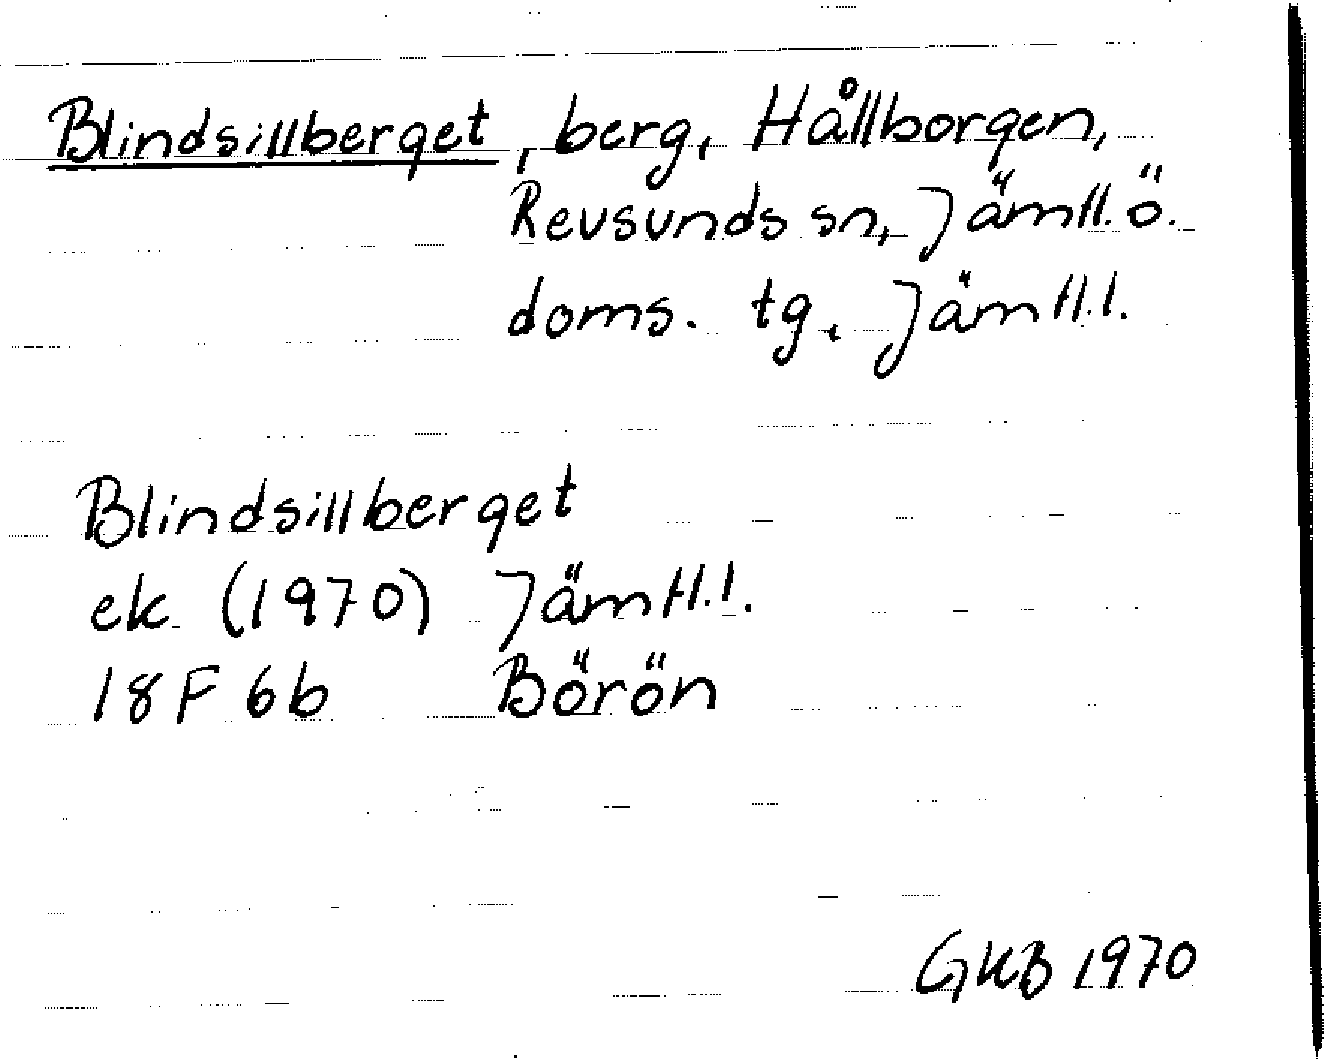 Blindsillberget, berg, Hållborgen,
Revsunds sn, Jämtl. ö.
doms. tg, Jämtl.l.
Blindsillberget
ek (1970) Jämtl.l.
18F 6b Börön
GKB 1970